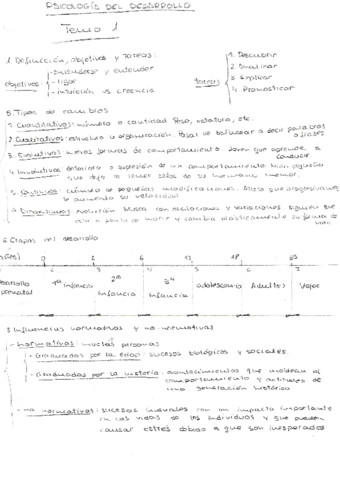 PSICOLOGÍA DEL DESARROLLO
Tema 1
1. Definición, objetivos y tareas:
objetivos
- Entender
- rigor
- intuición vs creencia
tareas
1. Descubrir
3. Explicar
4. Pronosticar
5. Tipos de cambios
1. Cuantitativos: número o cantidad. Peso, estatura, etc.
2. Cualitativos: estructura u organización. Pasar de balbucear a decir palabras
o frases
3. Evolutivos: nuevas formas de comportamiento. Joven que aprende a
conducir
4. Involutivos: deterioro o supresión de un comportamiento. Niño pequeño
que deja de tener celos de su hermano menor.
5. cúmulo de pequeñas modificaciones. que progresivamente
aumenta su velocidad
evolución con oscilaciones y variaciones. Alguien que
está a punto de morir y cambia drásticamente su forma de
vida
6. Etapas del desarrollo
0 2 6 12 18 65
prenatal
1ª infancia
2ª infancia
3ª infancia
adolescencia
Adultos
Vejez
3. Influencias normativas y no normativas
- normativas: muchas personas
- Graduadas por la edad: sucesos biológicos y sociales
- Graduadas por la historia: acontecimientos que moldean el
comportamiento y actitudes de
una generación histórica
- no normativas: sucesos inusuales con un impacto importante
en las vidas de los individuos y que pueden
causar estrés debido a que son inesperados